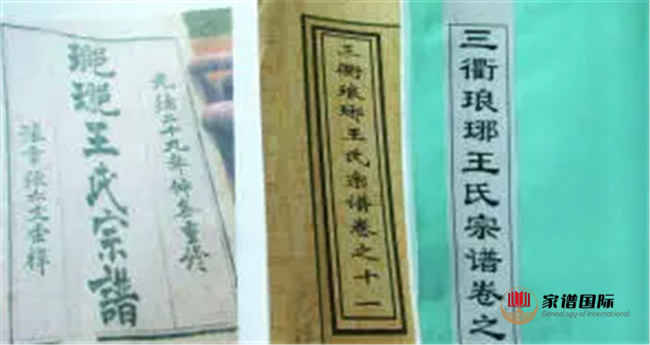 光緒二十九年仲冬重修
王氏宗譜
三衢琅琊王氏宗谱卷之十一
三衢琅琊王氏宗谱卷之
家谱国际
Genealogy of International